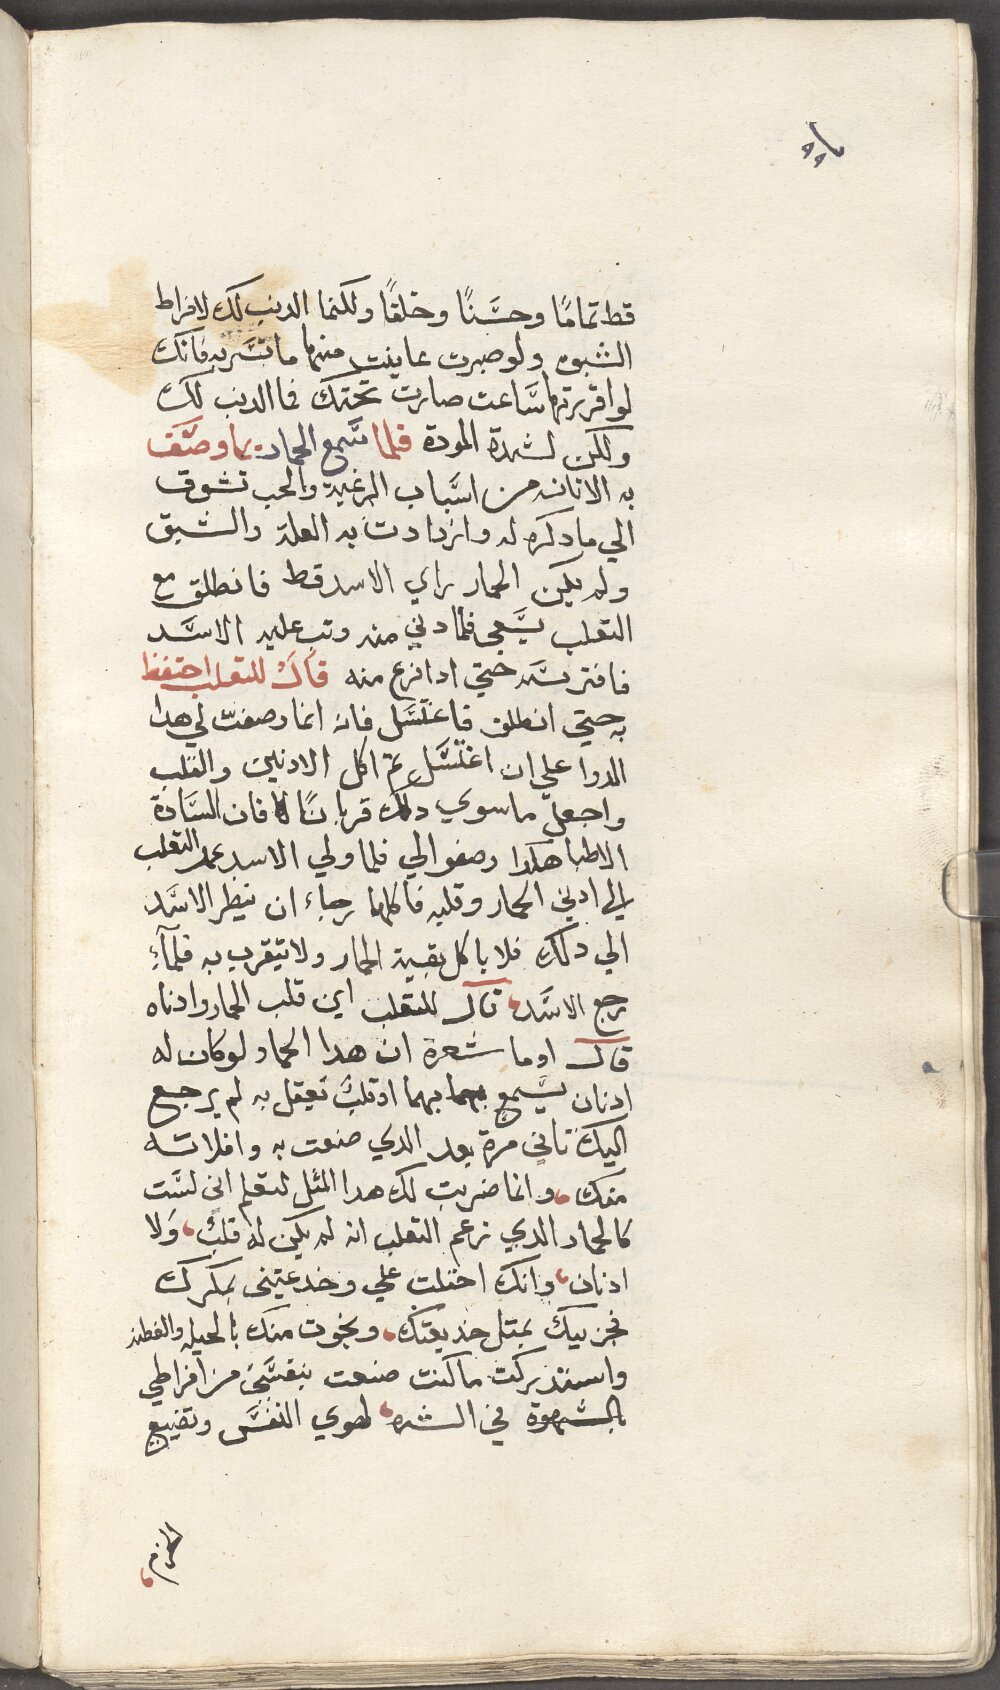 قط تمامًا وحسنًا وخلقًا ولكنما الدنب لك لافراط
الشبوه ولو صبرت عاينت منها ما تسر به فانك
لو اقررتها ساعت صارت تحتك فما الدنب لك
ولكن لشدة المودة فلما سمع الحمار بما وصف
به الاتانه من اسباب الرغبة والحب تشوق
الي ما دكره له وازدادت به الغلة والشبق
ولم يكن الحمار راي الاسد قط فانطلق مع
التعلب يسعي فلما دني منه وتب عليه الاسد
فافترسه حتي ادا فرغ منه قال للتعلب احتفظ
به حتي انطلق فاغتسل فانه انما وصفت لي هدا
الدوا علي ان اغتسل تم اكل الادنين والقلب
واجعل ما سوي دلك قربانًا فان السادة
الاطبا هكدا وصفو الي فلما ولي الاسد عمد التعلب
الي ادني الحمار وقلبه فاكلهما رجاء ان ينظر الاسد
الي دلك فلا ياكل بقية الحمار ولا يتقرب به فلما
رجع الاسد قال للتعلب اين قلب الحمار وادناه
قال اوما شعرة ان هدا الحمار لو كان له
ادنان يسمع بهما او قلب يعقل به لم يرجع
اليك تاني مرة بعد الدي صنعت به وافلاته
منك وانما ضربت لك هدا المتل لتعلم اني لست
كالحمار الدي زعم التعلب انه لم يكن له قلب ولا
ادنان وانك احتلت علي وخدعتني بمكرك
فجزيتك بمتل خديعتك ونجوت منك بالحيله والفطنه
واستدركت ما كنت صنعت بنفسي من افراطي
بالشهوة في الشره لهوي النفس وتضيع
الحزم